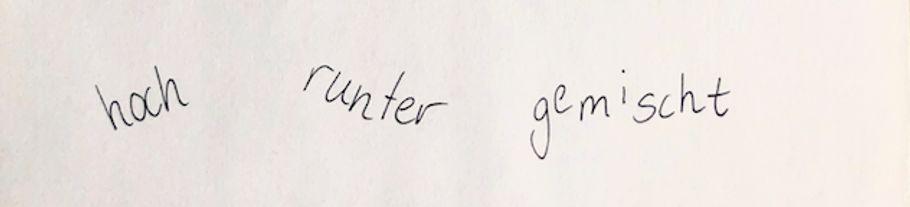 hoch runter gemischt